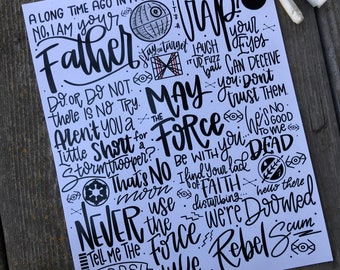 A LONG TIME AGO IN A
NO, I AM your
Father
Stay on target
LAUGH
IT UP, FUZZ
ball
your
eyes
CAN DECEIVE
you. Don't
trust THEM
DO. OR DO NOT
there IS NO TRY.
Aren't you A
little Short for A
Stormtrooper?
That's
NO
moon
MAY
THE
FORCE
BE WITH you
we're
NO
GOOD
TO ME
DEAD
hello there
I find your lack
of FAITH
disturbing
We're Doomed
NEVER
TELL ME THE
use
the
Force
Rebel
Scum